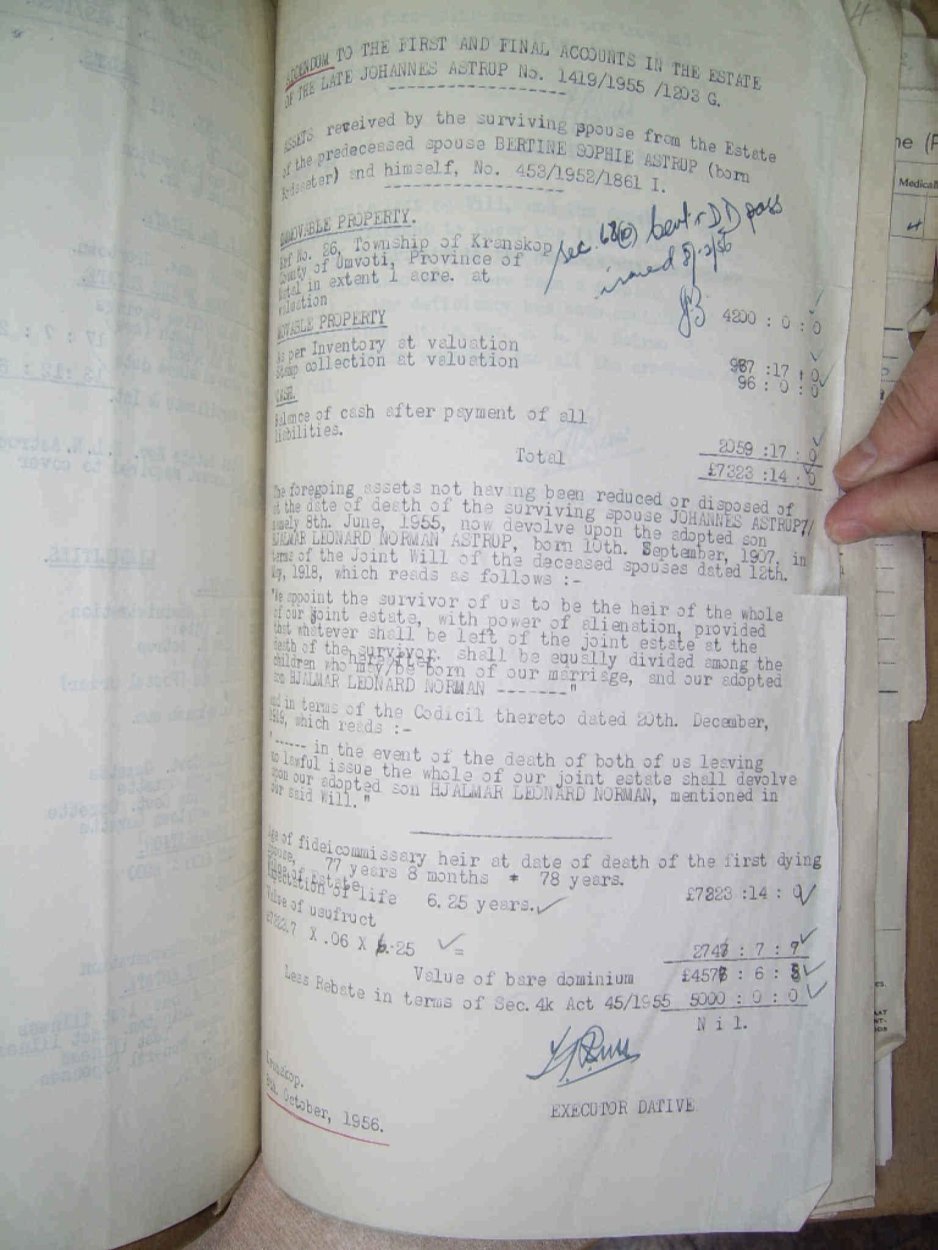 ADDENDUM TO THE FIRST AND FINAL ACCOUNTS IN THE ESTATE
OF THE LATE JOHANNES ASTRUP No. 1419/1955 /1203 G.
ASSETS received by the surviving ppouse from the Estate
of the predeceased spouse BERTINE SOPHIE ASTRUP (born
and himself, No. 453/1952/1861 I.
IMMOVABLE PROPERTY.
Erf No. 26, Township of Kranskop
County of Umvoti, Province of
Natal in extent 1 acre. at
valuation
4200 : 0 : 0
sec. 68 cert r DD pass
issued
MOVABLE PROPERTY
As per Inventory at valuation 967 :17 : 0
Stamp collection at valuation 96 : 0 : 0
CASH.
Balance of cash after payment of all
liabilities. 2059 :17 : 0
Total £7323 :14 : 0
The foregoing assets not having been reduced or disposed of
at the date of death of the surviving spouse JOHANNES ASTRUP,
namely 8th. June, 1955, now devolve upon the adopted son
HJALMAR LEONARD NORMAN ASTRUP, born 10th. September, 1907, in
terms of the Joint Will of the deceased spouses dated 12th.
May, 1918, which reads as follows :-
"We appoint the survivor of us to be the heir of the whole
of our joint estate, with power of alienation, provided
that whatever shall be left of the joint estate at the
death of the survivor. shall be equally divided among the
children who may hereafter be born of our marriage, and our adopted
son HJALMAR LEONARD NORMAN -------"
and in terms of the Codicil thereto dated 20th. December,
1919, which reads :-
"------ in the event of the death of both of us leaving
no lawful issue the whole of our joint estate shall devolve
upon our adopted son HJALMAR LEONARD NORMAN, mentioned in
our said Will."
Age of fideicommissary heir at date of death of the first dying
spouse, 77 years 8 months = 78 years.
Value of Estate £7323 :14 : 0
Expectation of life 6.25 years.
Value of usufruct
£7323.7 X .06 X 6.25 = 2747 : 7 : 9
Value of bare dominium £4576 : 6 : 3
Less Rebate in terms of Sec. 4k Act 45/1955 5000 : 0 : 0
Nil.
EXECUTOR DATIVE
Kranskop.
8th. October, 1956.
Medical